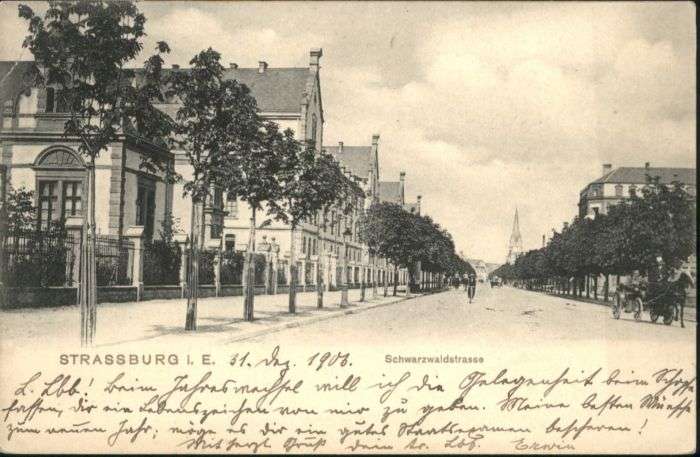 STRASSBURG I. E. 31. Dez. 1906. Schwarzwaldstrasse
L. Lbb! Beim Jahreswechsel will ich die Gelegenheit beim Schopf
fassen, dir ein Lebenszeichen von mir zu geben. Meine besten Wünsche
zum neuen Jahr; möge es dir ein gutes Staatsexamen bescheren!
Mit herzl. Gruß dein tr. Lbb. Erwin